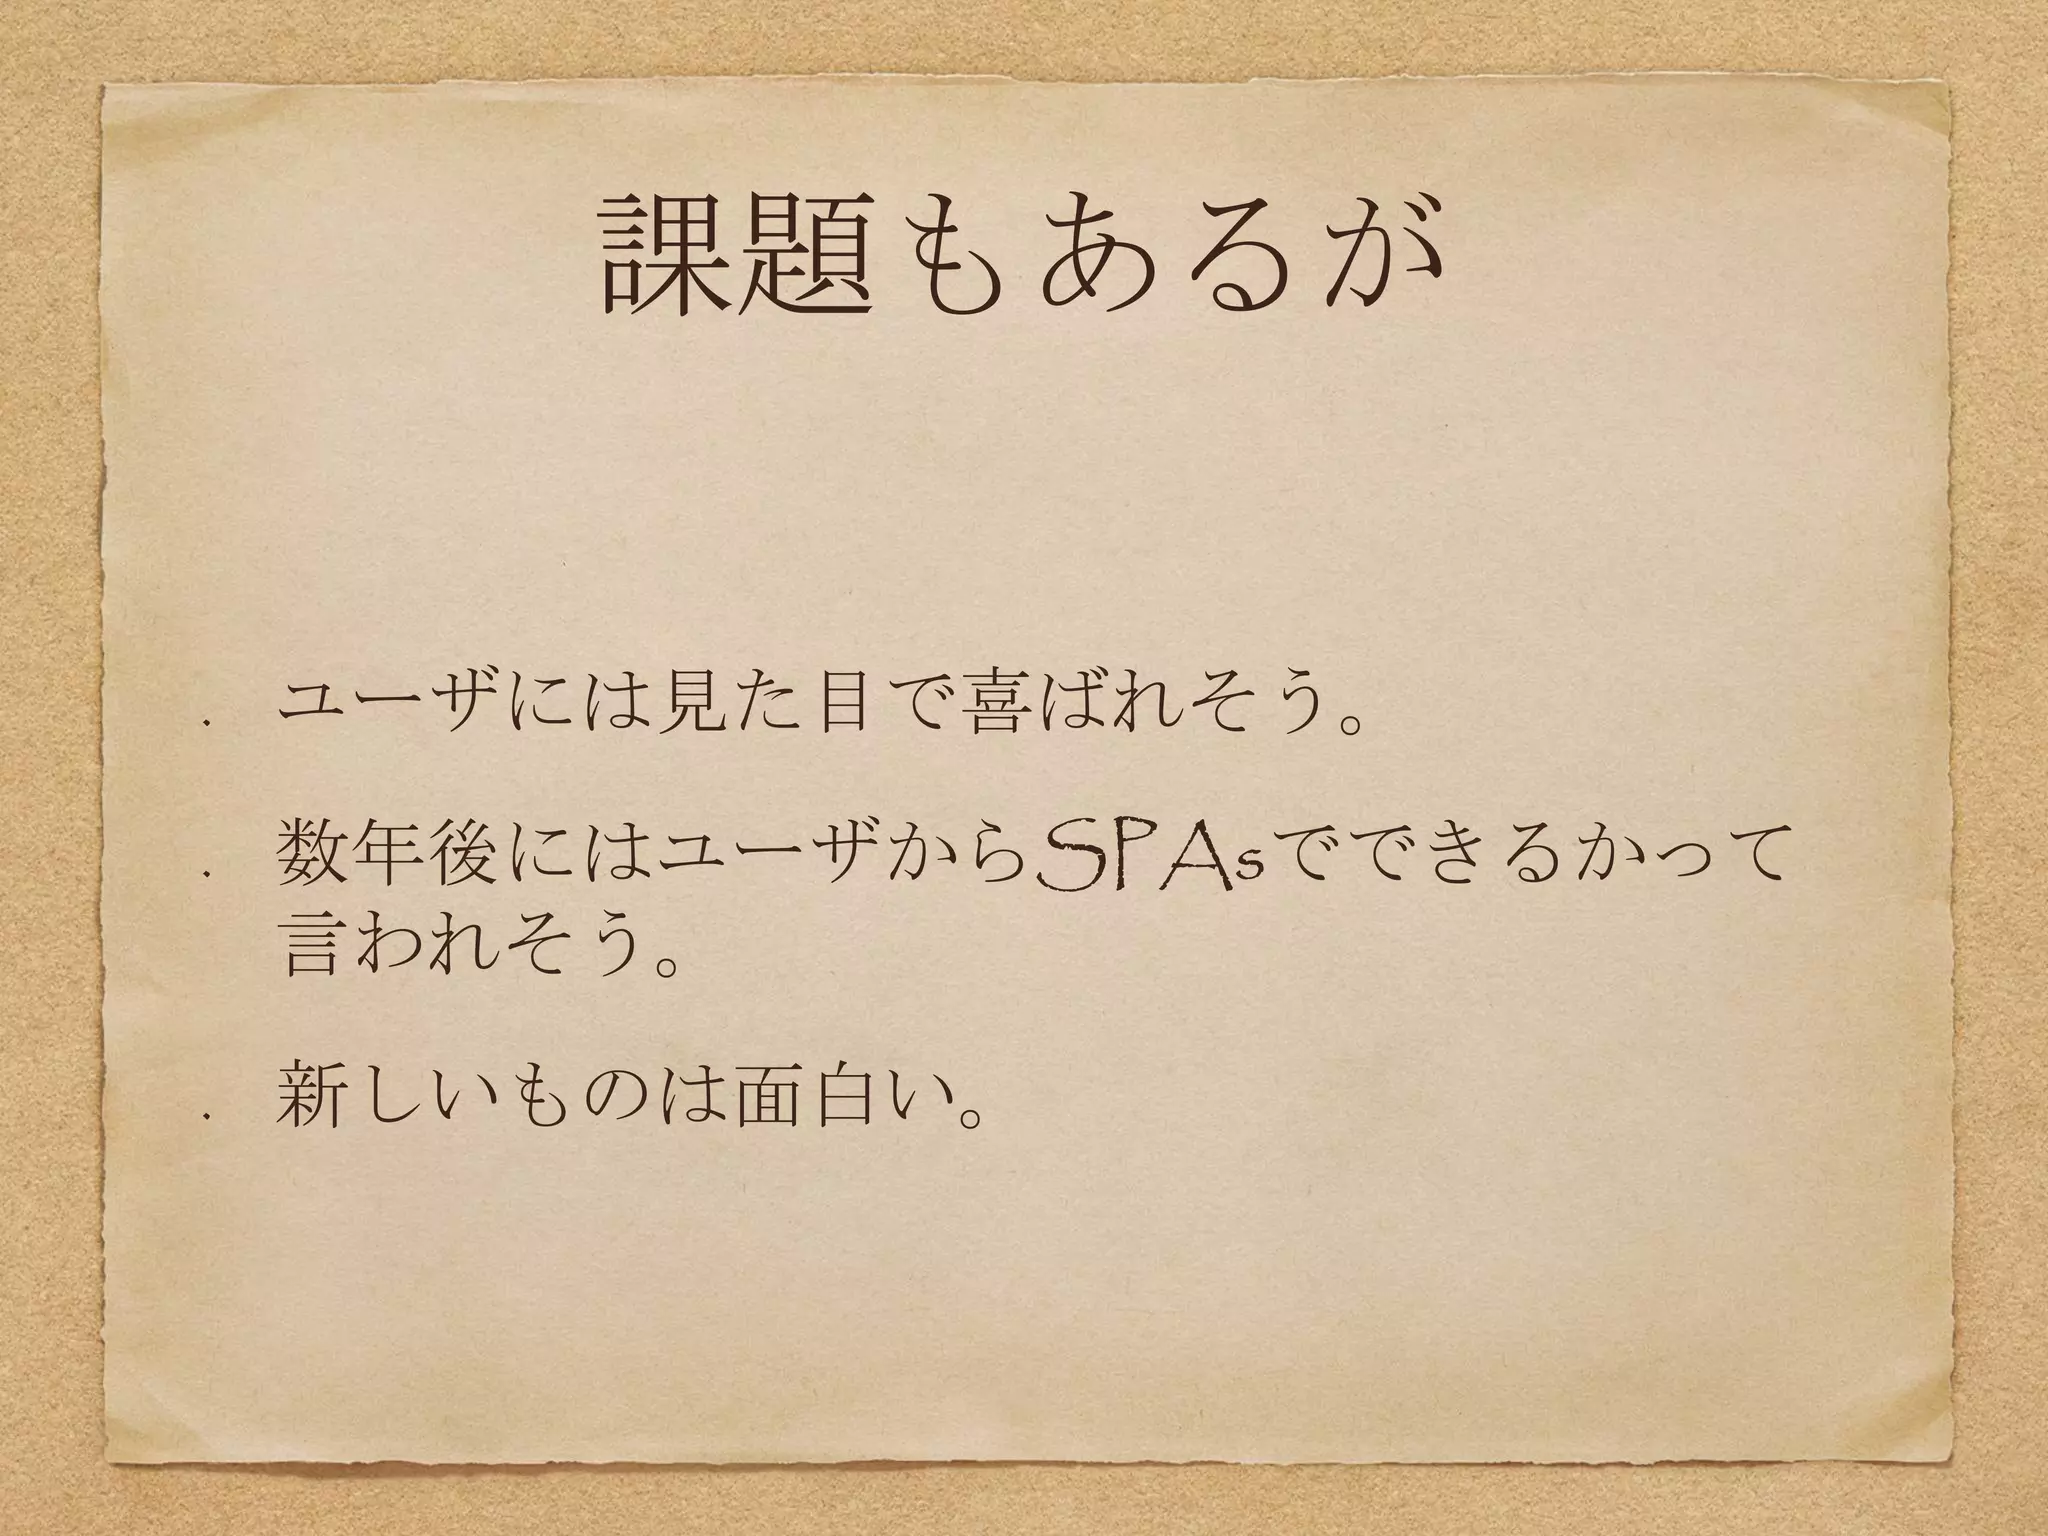 課題もあるが
• ユーザには見た目で喜ばれそう。
• 数年後にはユーザからSPAsでできるかって
言われそう。
• 新しいものは面白い。